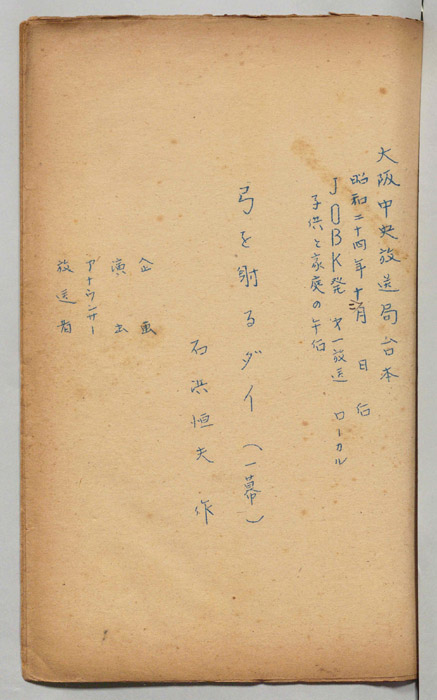 大阪中央放送局台本
昭和二十四年十二月　日　后
JOBK発　才一放送　ローカル
子供と家庭の午后
弓を射るダイ（一幕）
石浜恒夫　作
企画
演出
アナウンサー
放送者